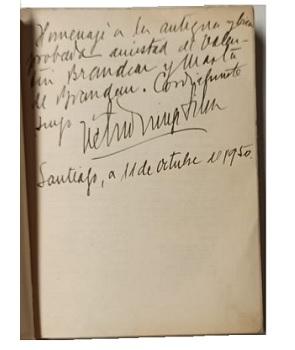 Homenaje a la antigua y bien
probada amistad de Valen-
tín Brandau y Marta
de Brandau. Cordialmente
suyo
Santiago, a 11 de octubre de 1950.